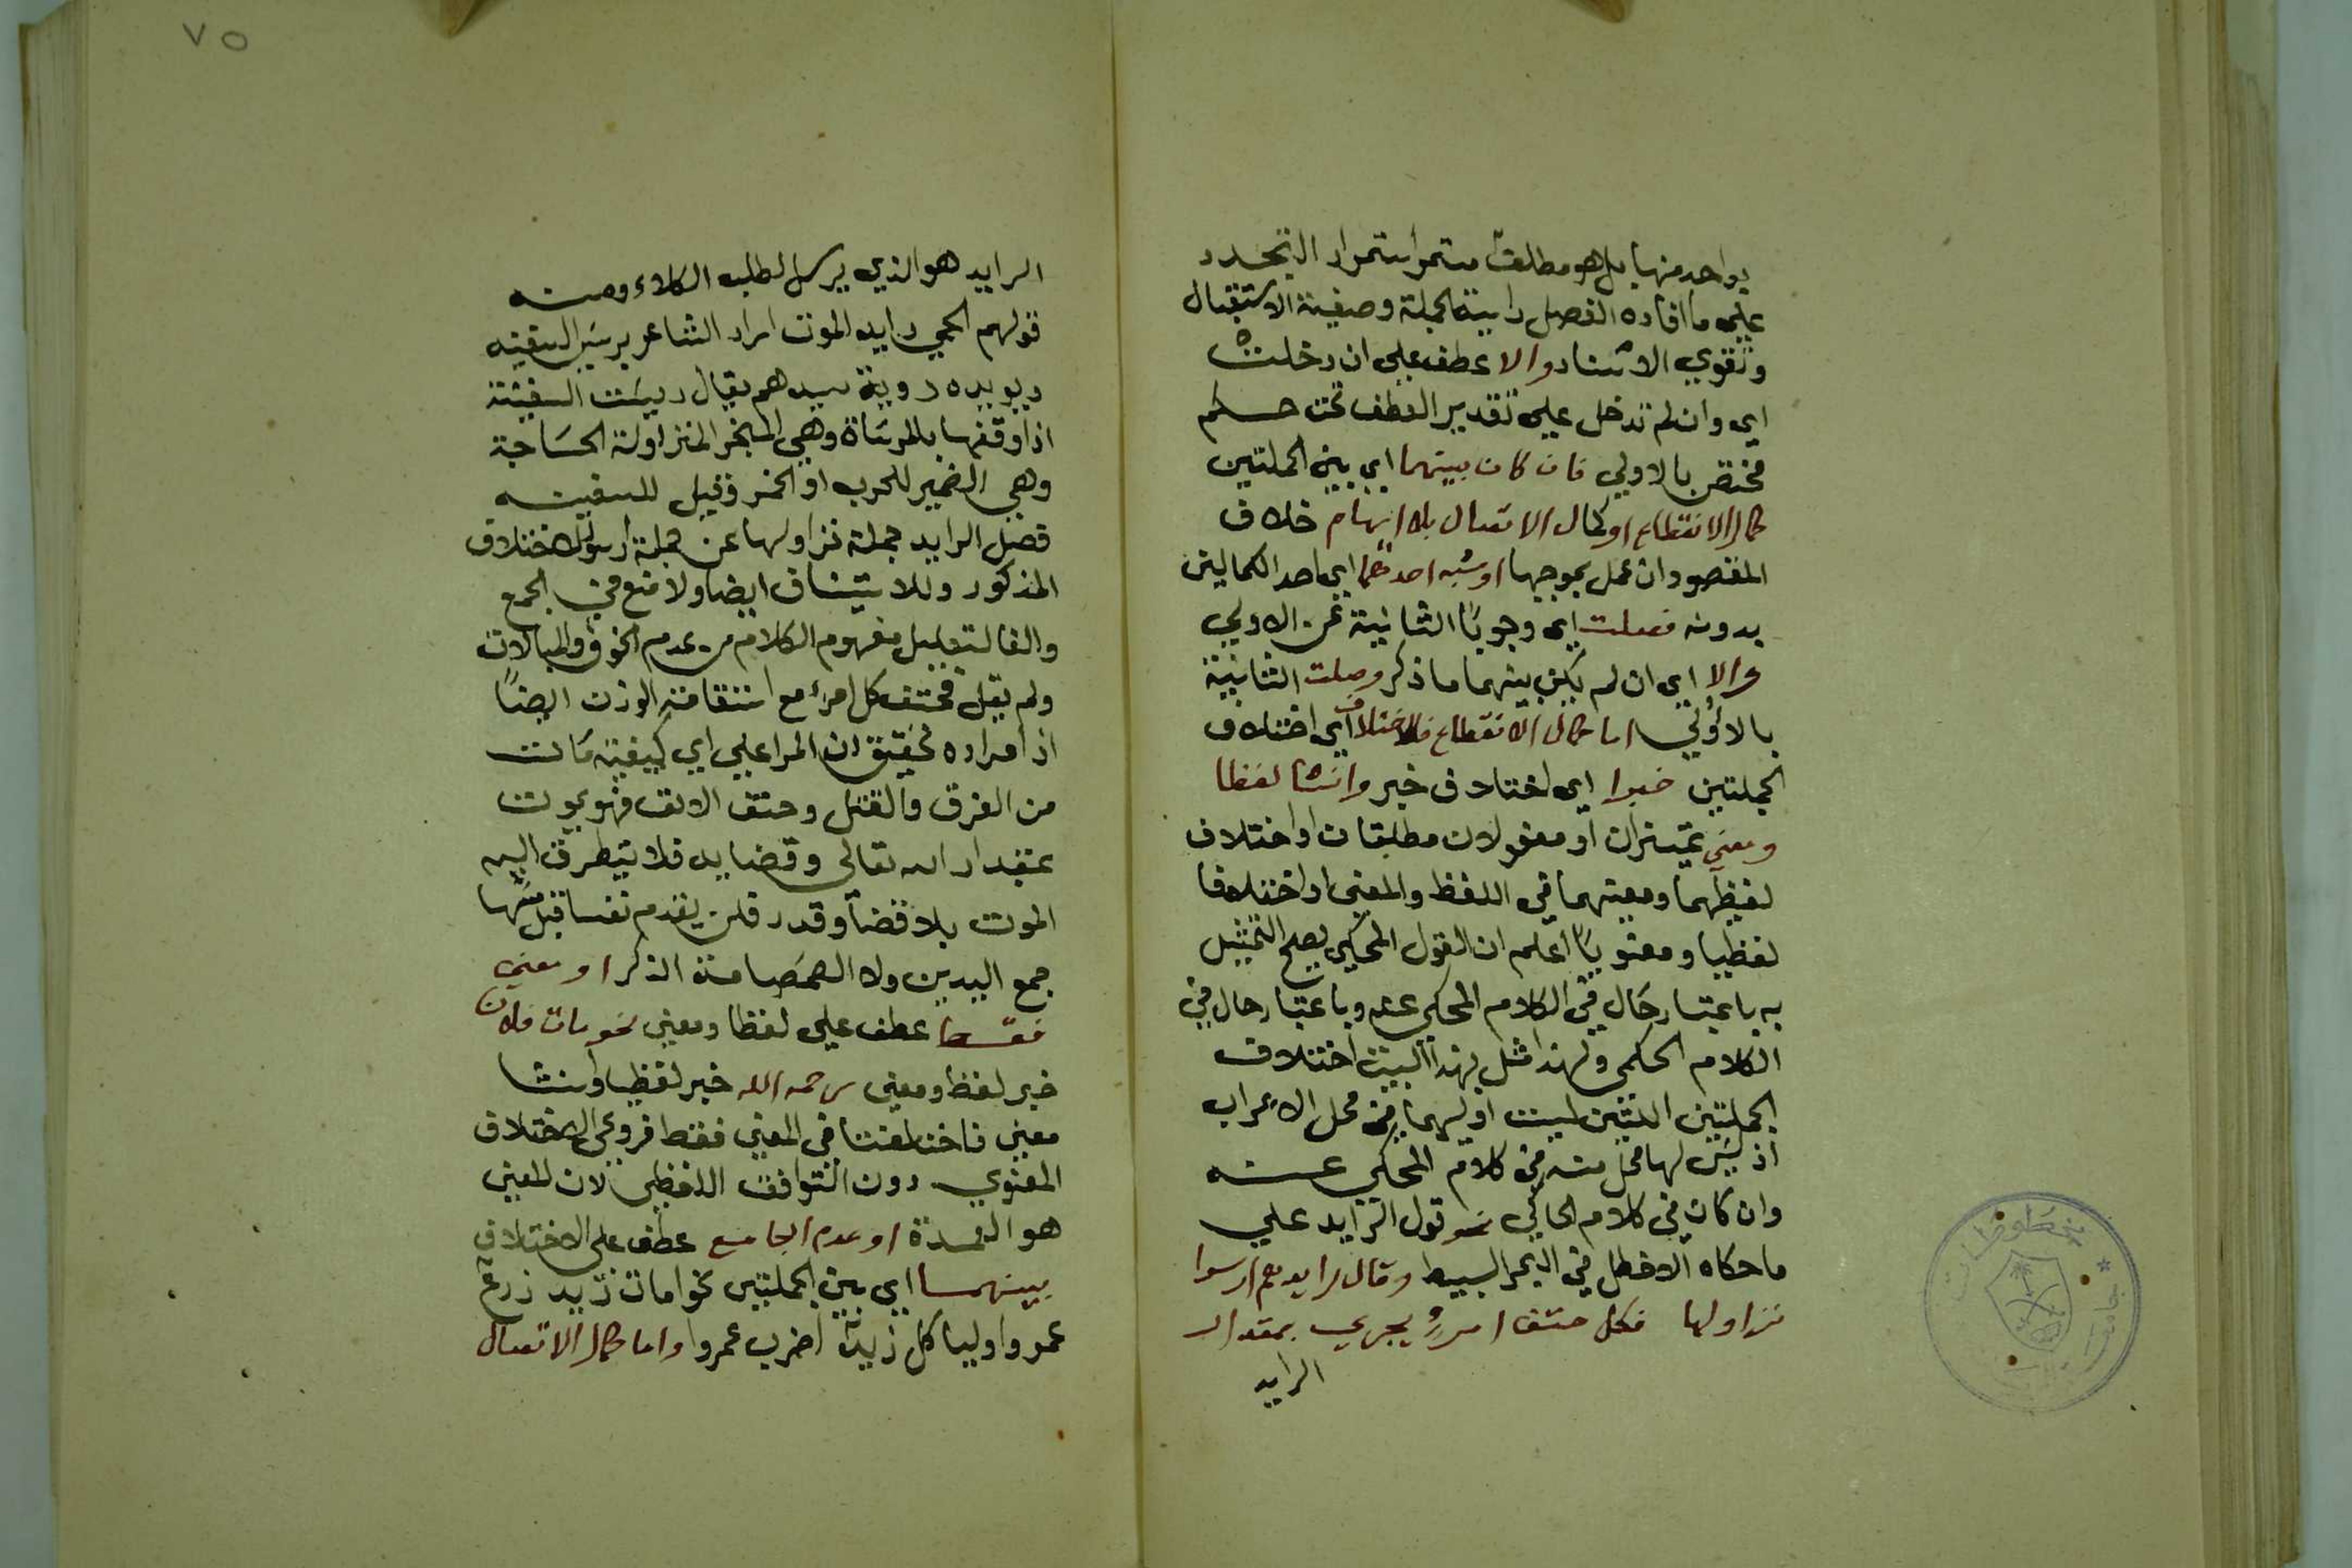 بواحد منها بل هو مطلق مستمر استمرار التجدد
على ما افاده الفصل واسية الجملة وصيغة الاستقبال
وتقوي الاسناد والا عطف على ان دخلت
اي وان لم تدخل على تقدير العطف تحت حكم
مختص بالاولي فان كان بينهما اي بين الجملتين
كمال الانقطاع او كمال الاتصال بلا ايهام خلاف
المقصود ان عمل بموجبها او شبه احدهما اي احد الكمالين
بدونه فصلت اي وجوبا الثانية عن الاولي
والا اي ان لم يكن بينهما ما ذكر وصلت الثانية
بالاولي اما كمال الانقطاع فلاختلاف اي اختلاف
الجملتين خبرا اي اختلاف في خبر وانشا لفظا
ومعنى تميزان او مفعولان مطلقان او اختلاف
لفظهما ومعنيهما في اللفظ والمعنى او اختلافا
لفظيا ومعنويا اعلم ان القول المحكي يصح التمثيل
به باعتبار حال في الكلام المحكي عنه وباعتبار حال في
الكلام الحكمي ولهذا مثل بهذا البيت اختلاف
الجملتين اللتين ليست اوليهما في محل الاعراب
اذ ليس لها محل منه في كلام المحكي عنه
وان كان في كلام الحاكي نحو قول الزايد علي
ما حكاه الاخطل في البحر البسيط وقال رايدهم ارسوا
نزاولها فكل حتف امرء يجري بمقدار
الرايد
٧٥
الرايد هو الذي يرسل لطلب الكلاء ومنه
قولهم الحمي رايد الموت اراد الشاعر برئيس السفينه
ويويده روية سيدهم يقال رسيت السفينة
اذا وقفها بالمرساة وهي المنجر المنزاولة الحساجة
وهي الضمير للحرب او الخمر وقيل للسفينه
فصل الرايد جملة نزاولها عن جملة ارسوا للاختلاف
المذكور وللاستيناف ايضا ولا منع في الجمع
والفا لتعليل مفهوم الكلام من عدم الخوف والمبالات
ولم يقل فحتف كل امرء مع استقامة الوزن ايضًا
اذ مراده تحقيق ان المرا علي اي كيفية مات
من الغرق والقتل وحتف الانف فهو يموت
بمقدار الله تعالى وقضايه فلا يتطرق اليه
الموت بلا قضا وقدر فلن يقدم نفسا قبل
جمع اليدين ولا الذكر او معنى
فقط عطف على لفظا ومعنى نحو مات فلان
خبر لفظ ومعنى رحمه الله خبر لفظا وانشا
معنى فاختلفتا في المعنى فقط فروعي الاختلاف
المعنوي دون التوافق اللفظي لان المعنى
هو العمدة او عدم الجامع عطف على الاختلاف
بينهما اي بين الجملتين نحو امات زيد زرع
عمرو اوليا كل زيد اضرب عمروا واما كمال الاتصال
مخطوطات